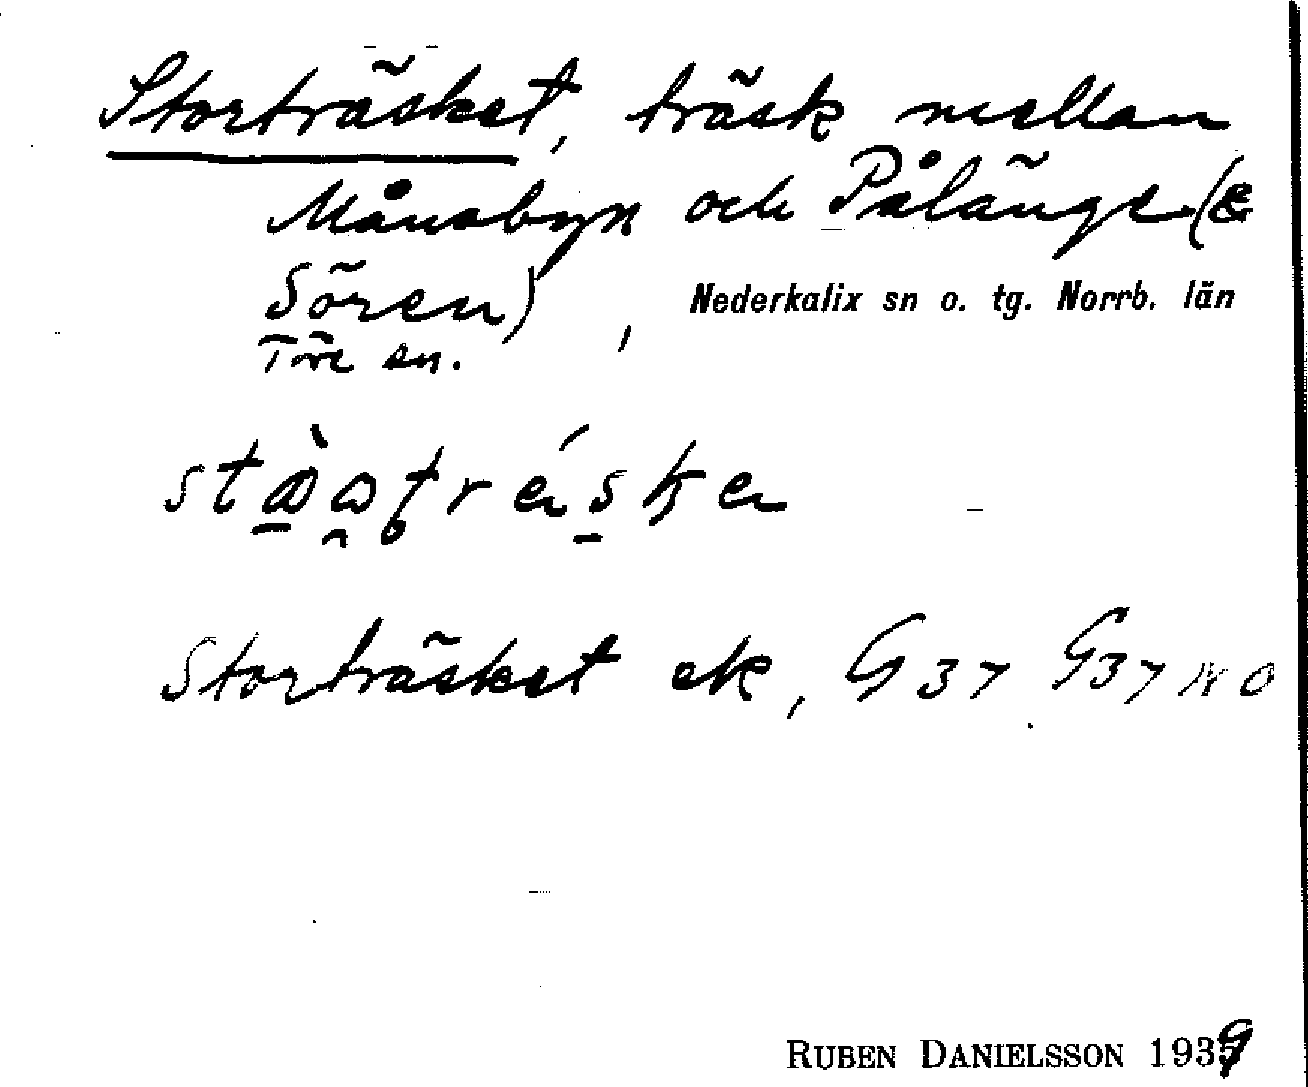 Storträsket, träsk mellan
Månsbyn och Pålänge (&
Sören), Nederkalix sn o. tg. Norrb. län
Töre sn.
Storträsket ek, G 37 G37 NO
RUBEN DANIELSSON 1939